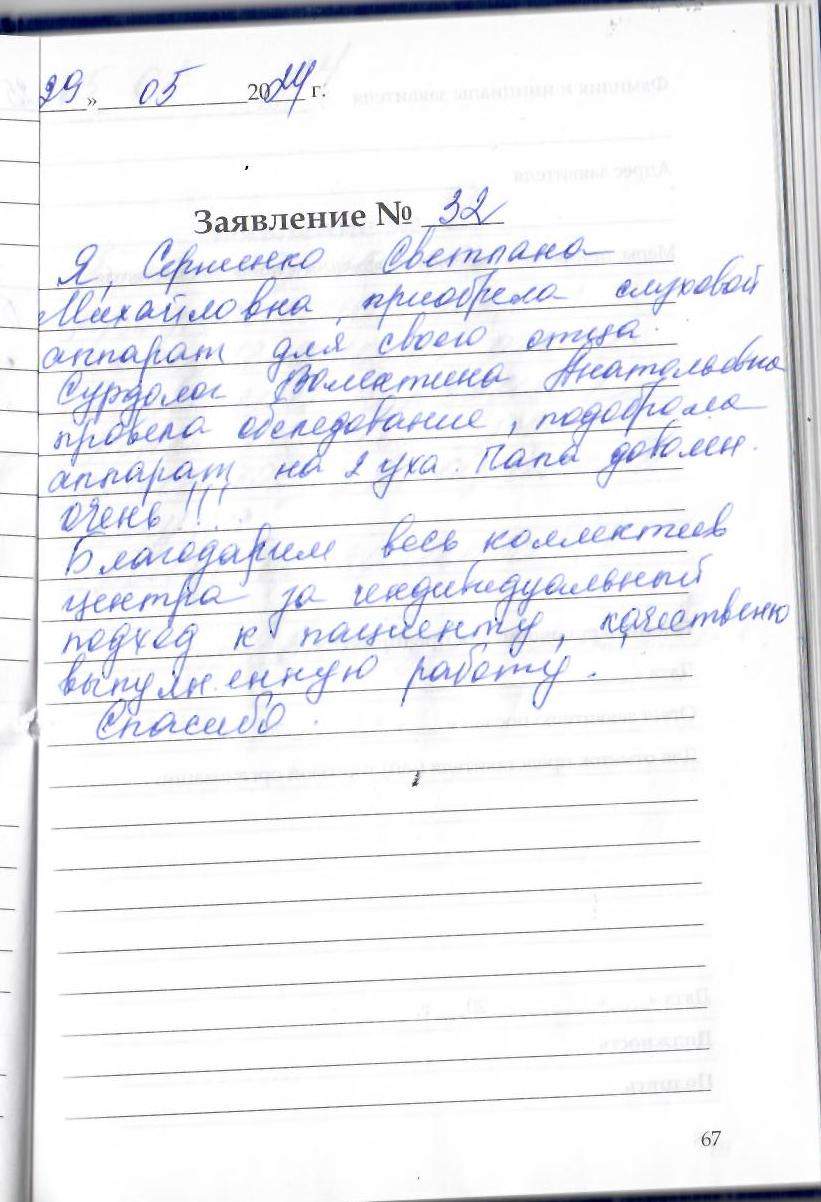 29 » 05 2024 г.
Заявление № 32
Я, Сергиенко Светлана
Михайловна, приобрела слуховой
аппарат для своего отца.
Сурдолог Валентина Анатольевна
провела обследование, подобрала
аппарат на 2 уха. Папа доволен
очень!!!
Благодарим весь коллектив
центра за индивидуальный
подход к пациенту, качественю
выпулненную работу.
Спасибо.
67